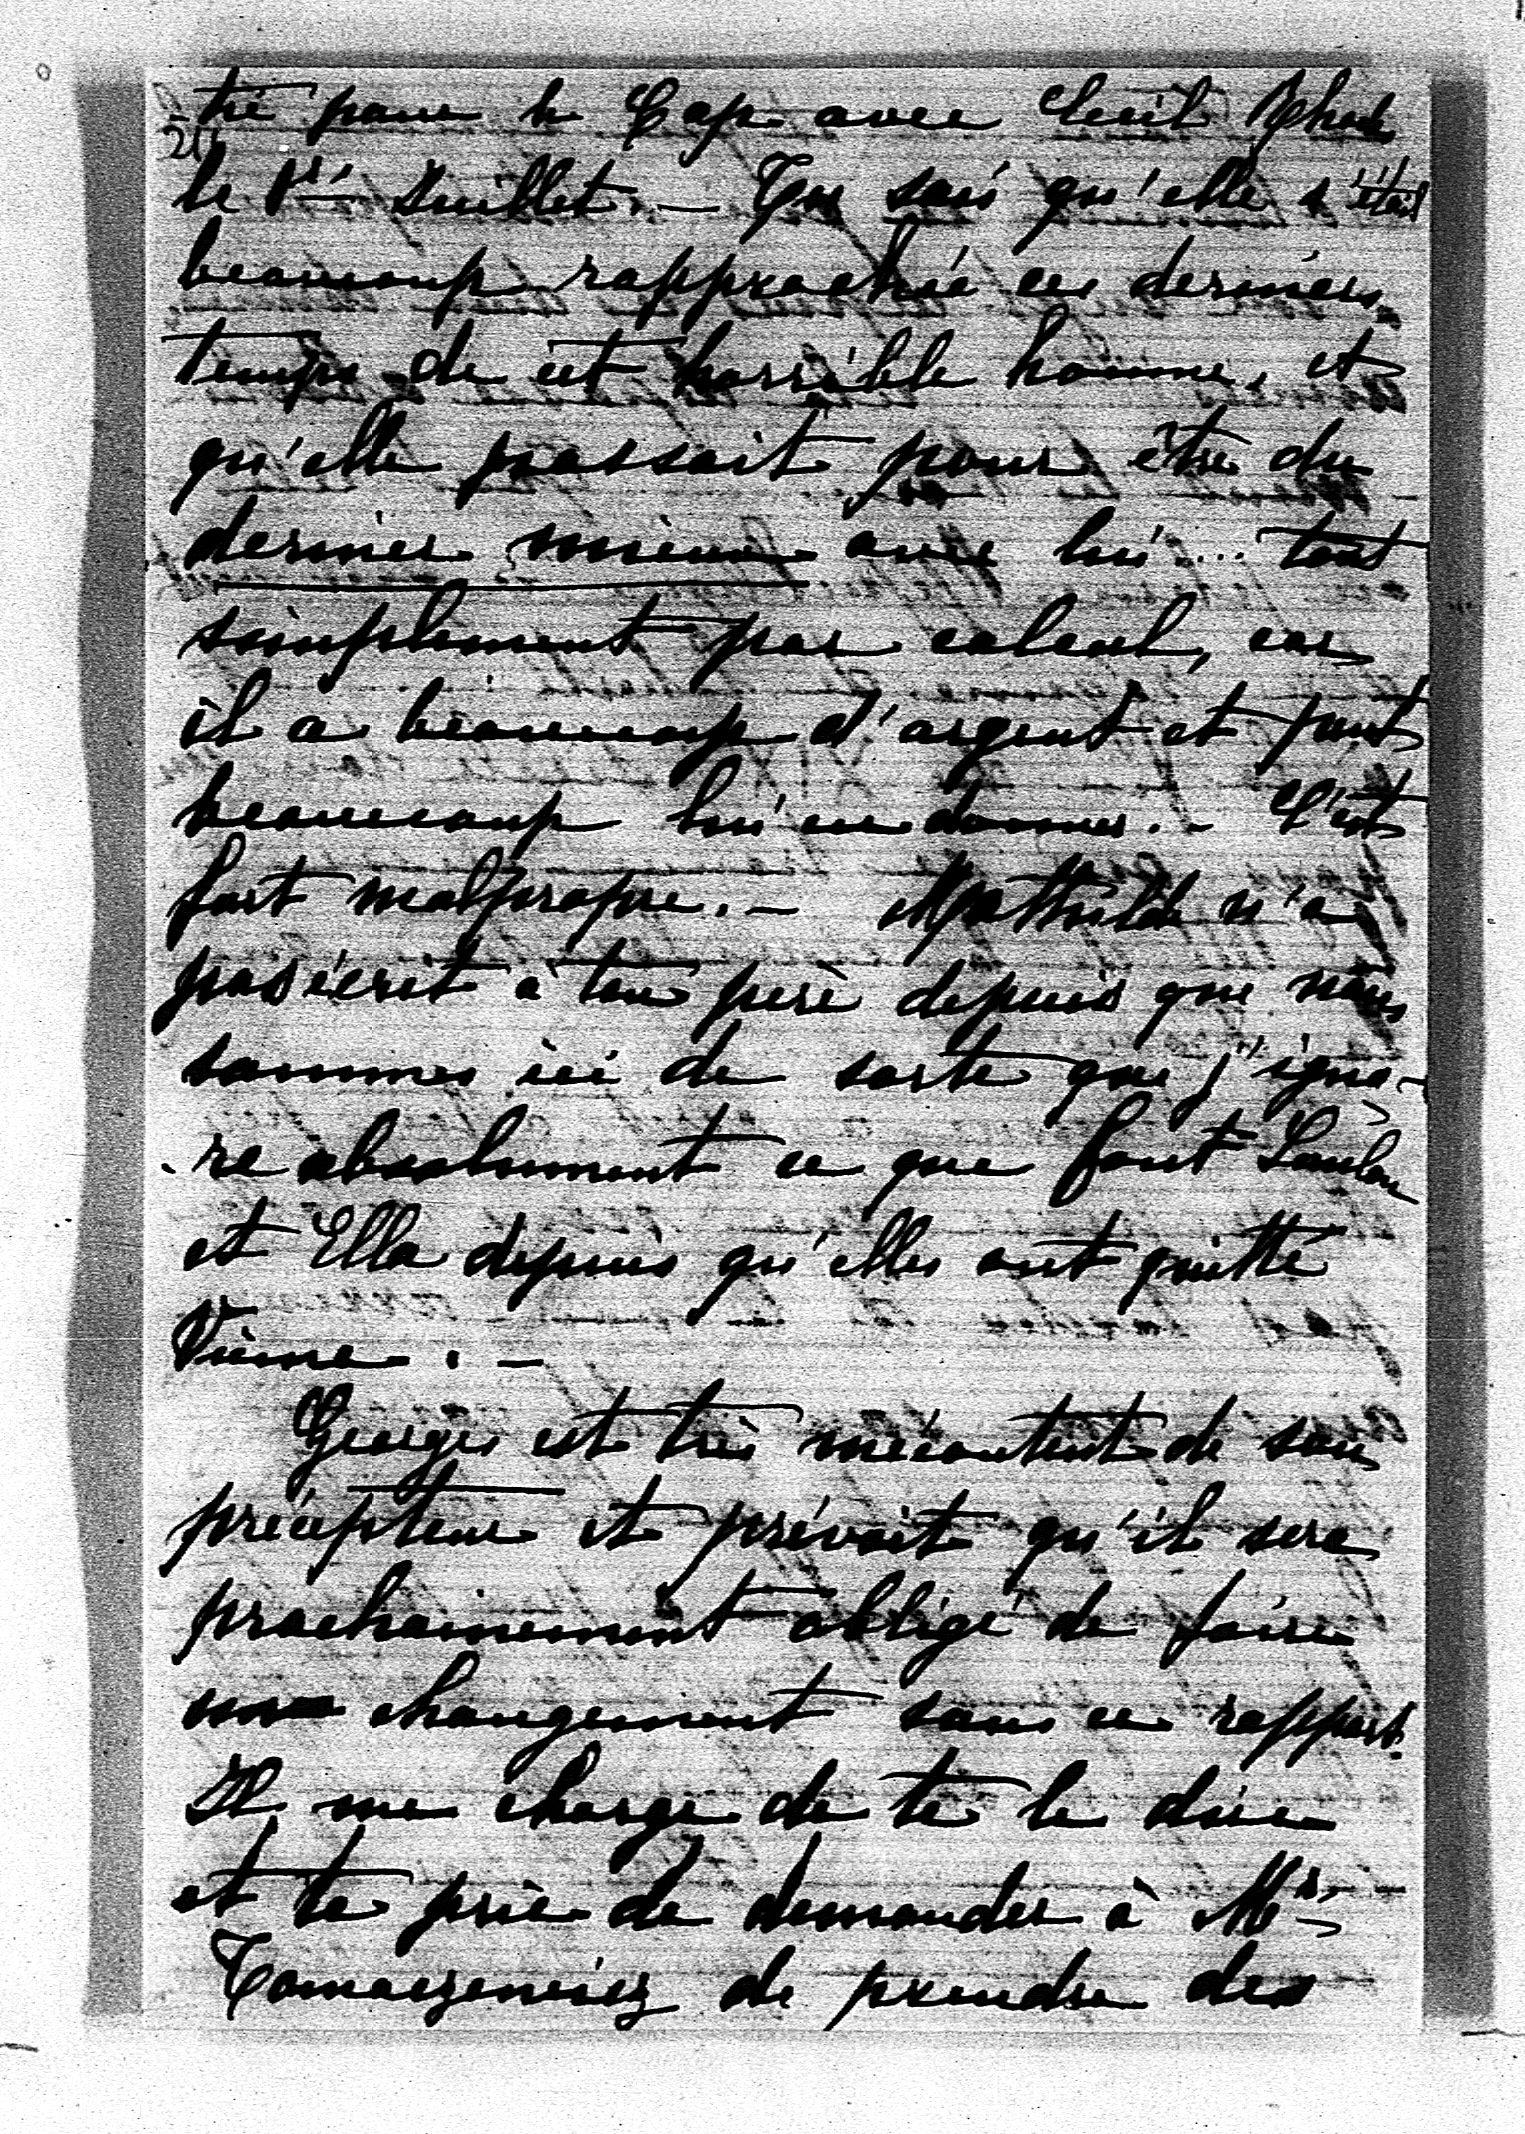 -tré pour le Cap avec Cecil Rhodes
24
le 1er Juillet. — Tu sais qu'elle s'était
beaucoup rapprochée ces derniers
temps de cet horrible homme, et
qu'elle passait pour être du
dernier mieux avec lui... tout
simplement par calcul, car
il a beaucoup d'argent et peut
beaucoup lui en donner. — C'est
fort malpropre. — Mathilde n'a
pas écrit à ton père depuis que nous
sommes ici de sorte que j'igno-
-re absolument ce que font Loulou
et Ella depuis qu'elles ont quitté
Vienne. —
Georges est très mécontent de son
précepteur et prévoit qu'il sera
prochainement obligé de faire
un changement sous ce rapport.
Il me charge de te le dire
et te prie de demander à Mr
de prendre des